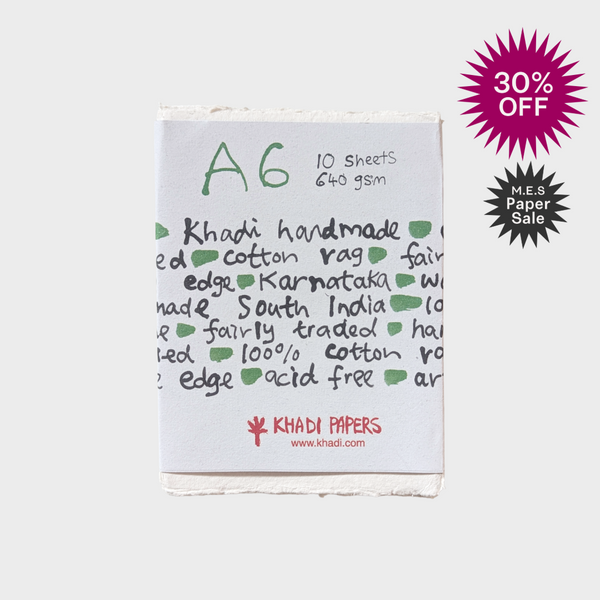 30%
OFF
M.E.S
Paper
Sale
A6
10 sheets
640 gsm
Khadi handmade
ed cotton rag fair
edge Karnataka
made South India
fairly traded
100% cotton
edge acid free
KHADI PAPERS
www.khadi.com